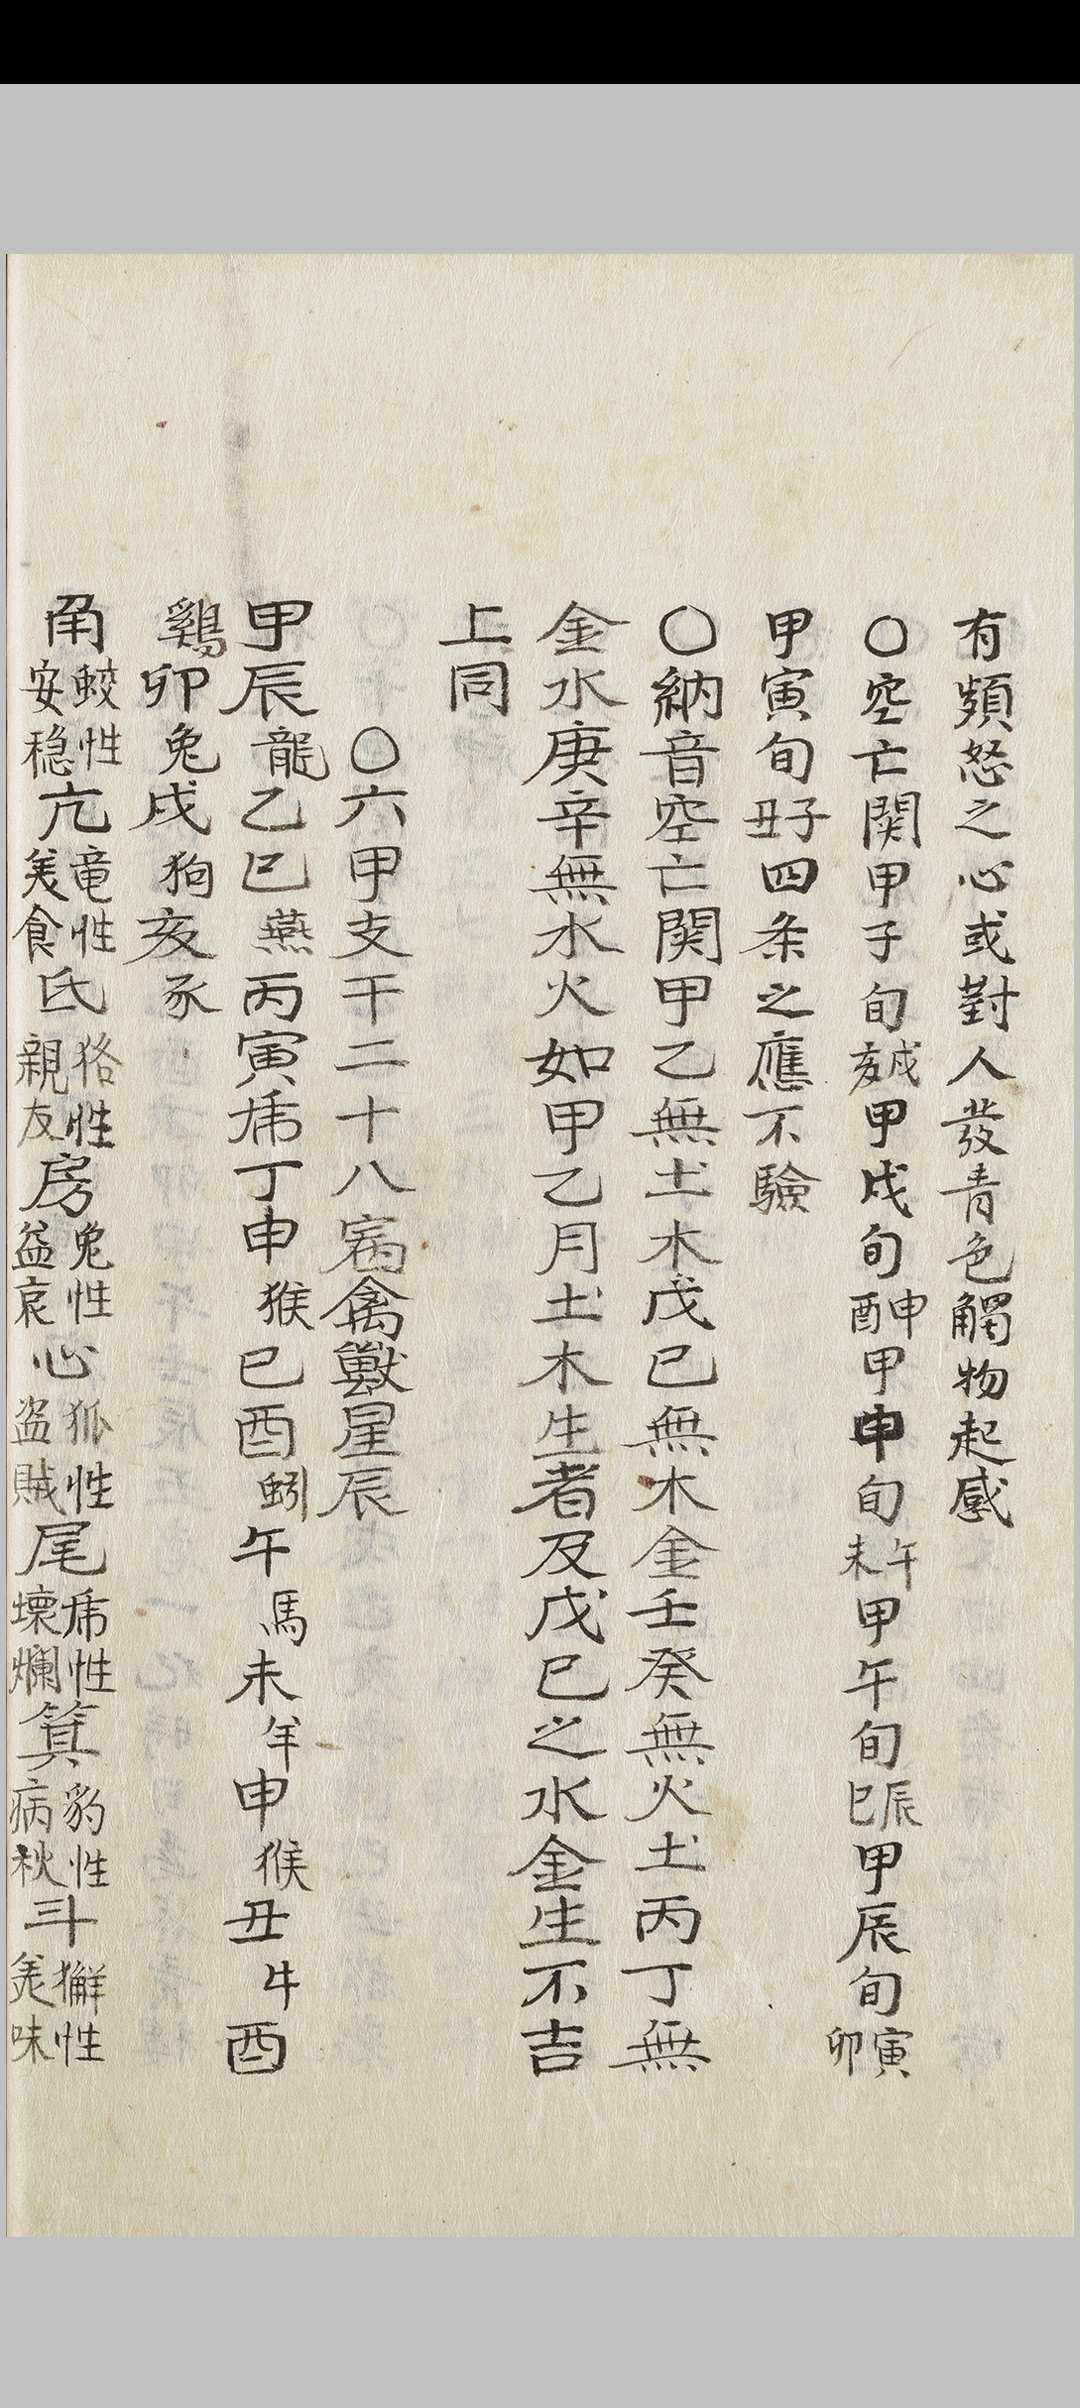 有頻怒之心或對人發青色觸物起感
〇空亡関甲子旬戌亥甲戌旬申酉甲申旬午未甲午旬辰巳甲辰旬寅卯
甲寅旬子丑四条之應不驗
〇納音空亡関甲乙無土木戊巳無木金壬癸無火土丙丁無
金水庚辛無水火如甲乙月土木生者及戊巳之水金生不吉
上同
〇六甲支干二十八宿禽獸星辰
甲辰龍乙巳燕丙寅乕丁申猴巳酉蚓午馬未羊申猴丑牛酉
鷄卯兔戌狗亥豕
角蛟性安穏亢竜性美食氐狢性親友房兔性益哀心狐性盗賊尾乕性壊爛箕豹性病秋斗獬性美味